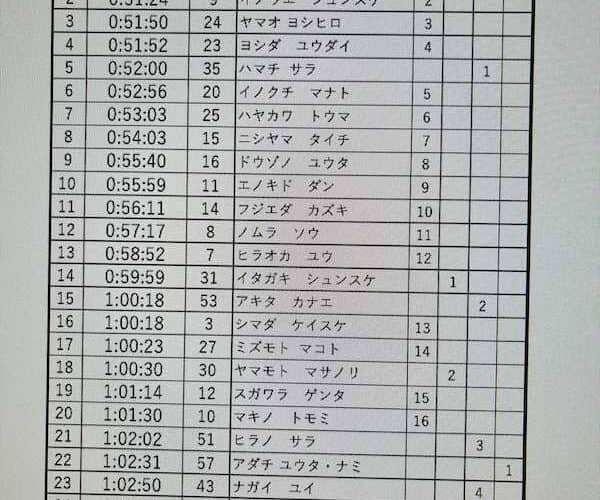 2 0:51:24 9 2
3 0:51:50 24 ヤマオ ヨシヒロ 3
4 0:51:52 23 ヨシダ ユウダイ 4
5 0:52:00 35 ハマチ サラ 1
6 0:52:56 20 イノクチ マナト 5
7 0:53:03 25 ハヤカワ トウマ 6
8 0:54:03 15 ニシヤマ タイチ 7
9 0:55:40 16 ドウゾノ ユウタ 8
10 0:55:59 11 エノキド ダン 9
11 0:56:11 14 フジエダ カズキ 10
12 0:57:17 8 ノムラ ソウ 11
13 0:58:52 7 ヒラオカ ユウ 12
14 0:59:59 31 イタガキ シュンスケ 1
15 1:00:18 53 アキタ カナエ 2
16 1:00:18 3 シマダ ケイスケ 13
17 1:00:23 27 ミズモト マコト 14
18 1:00:30 30 ヤマモト マサノリ 2
19 1:01:14 12 スガワラ ゲンタ 15
20 1:01:30 10 マキノ トモミ 16
21 1:02:02 51 ヒラノ サラ 3
22 1:02:31 57 アダチ ユウタ・ナミ 1
23 1:02:50 43 ナガイ ユイ 4